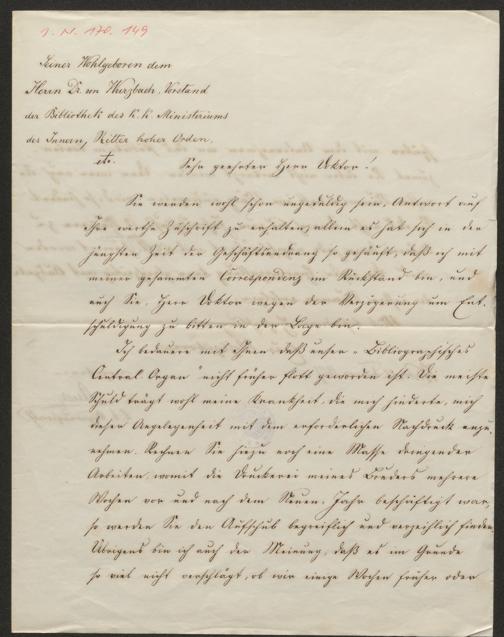 I. N. 170.149
Seiner Wohlgeboren dem
Herrn Dr. von Wurzbach, Vorstand
der Bibliothek des k. k. Ministeriums
des Innern, Ritter hoher Orden,
etc.
Sehr geehrter Herr Doktor!
Sie werden wohl schon ungeduldig sein, Antwort auf
Ihre werthe Zuschrift zu erhalten; allein es hat sich in der
jüngsten Zeit der Geschäftsandrang so gehäuft, daß ich mit
meiner gesammten Correspondenz im Rückstand bin, und
auch Sie, Herr Doktor wegen der Verzögerung um Ent-
schuldigung zu bitten in der Lage bin.
Ich bedauere mit Ihnen daß unser „Bibliographisches
Central Organ" nicht früher flott geworden ist. Die meiste
Schuld trägt wohl meine Krankheit, die mich hinderte, mich
dieser Angelegenheit mit dem erforderlichen Nachdruck anzu-
nehmen. Rechnen Sie hiezu noch eine Masse dringender
Arbeiten, womit die Druckerei meines Bruders mehrere
Wochen vor und nach dem Neuen Jahr beschäftigt war,
so werden Sie den Aufschub begreiflich und verzeihlich finden.
Übrigens bin ich auch der Meinung, daß es im Grunde
so viel nicht verschlägt, ob wir einige Wochen früher oder